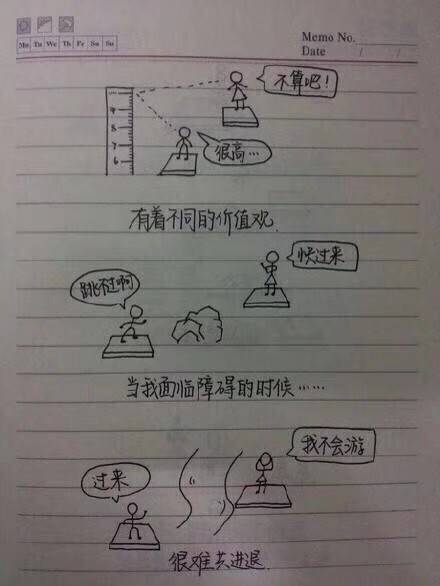 Mo Tu We Th Fr Sa Su
Memo No.
Date / /
不算吧！
很高…
有着不同的价值观.
快过来
跳不过啊
当我面临障碍的时候……
我不会游
过来
很难共进退.